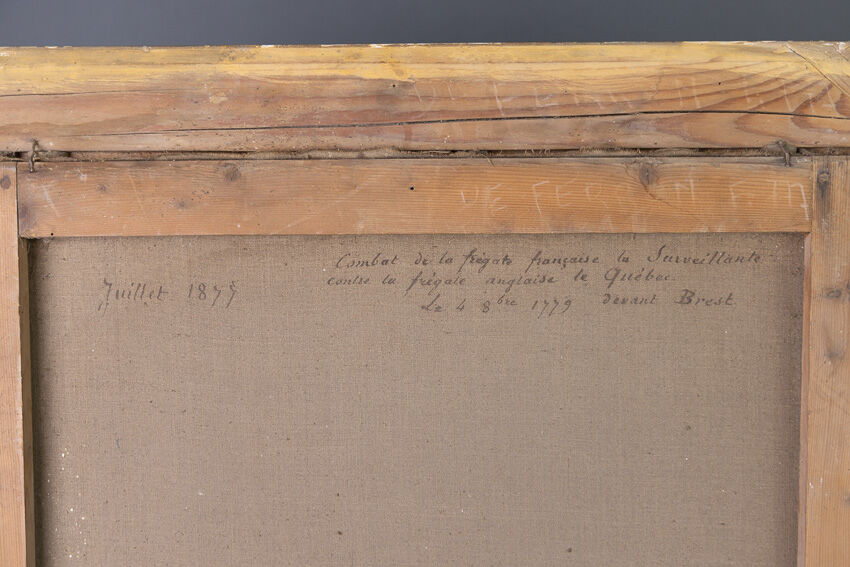 Combat de la frégate française la Surveillante
contre la frégate anglaise le Québec
Le 4 8bre 1779 devant Brest
Juillet 1877